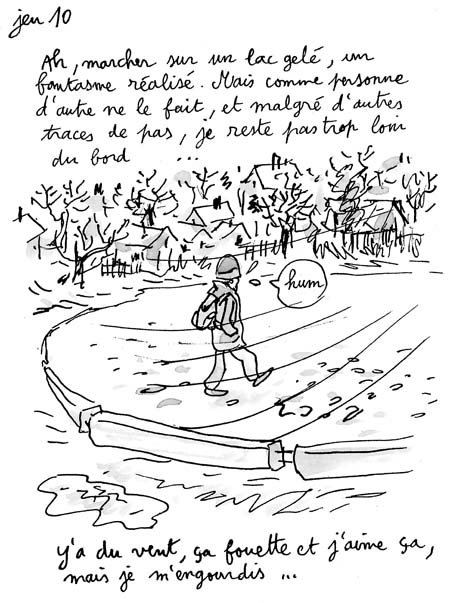 jeu 10
Ah, marcher sur un lac gelé, un
fantasme réalisé. Mais comme personne
d'autre ne le fait, et malgré d'autres
traces de pas, je reste pas trop loin
du bord ...
hum
Y'a du vent, ça fouette et j'aime ça,
mais je m'engourdis ...